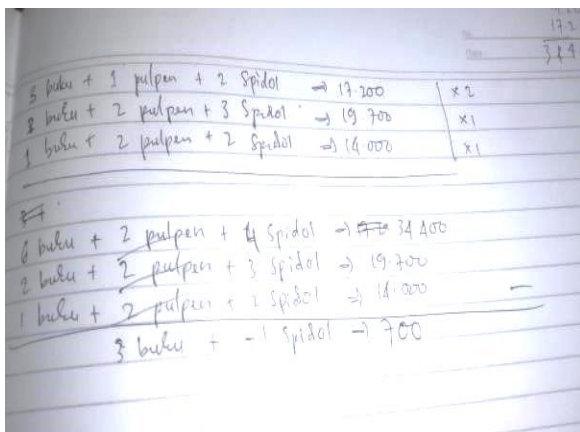 17.2
344
3 buku + 1 pulpen + 2 Spidol → 17.200 | x 2
2 buku + 2 pulpen + 3 Spidol → 19 700 | x1
1 buku + 2 pulpen + 2 Spidol → 14.000 | x1
6 buku + 2 pulpen + 4 Spidol → 34 400
2 buku + 2 pulpen + 3 Spidol → 19.700
1 buku + 2 pulpen + 2 Spidol → 14.000 –
3 buku + -1 Spidol → 700